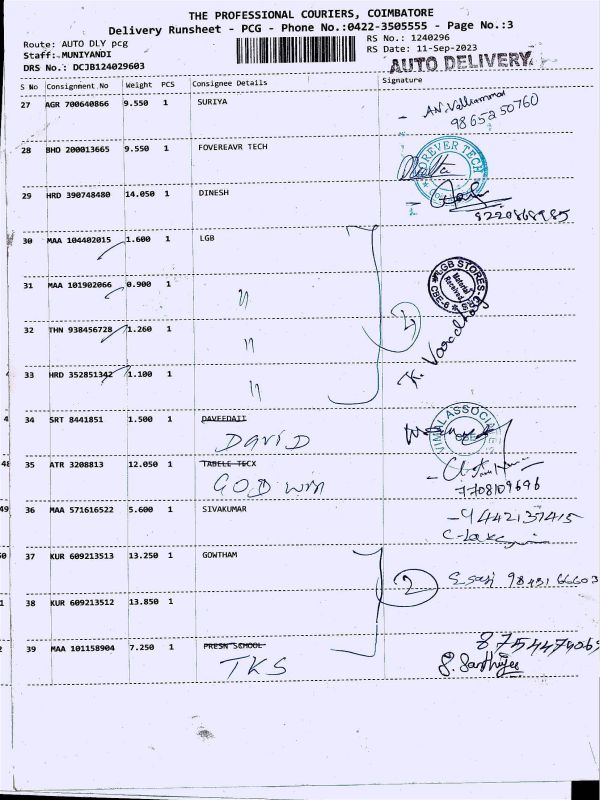 THE PROFESSIONAL COURIERS, COIMBATORE
Delivery Runsheet - PCG - Phone No.:0422-3505555 - Page No.:3
Route: AUTO DLY pcg
RS No.: 1240296
Staff: MUNIYANDI
RS Date: 11-Sep-2023
DRS No.: DCJB124029603
AUTO DELIVERY
S No Consignment No Weight PCS Consignee Details Signature
27 AGR 700640866 9.550 1 SURIYA
9865250760
28 BHO 200013665 9.550 1 FOVEREAVR TECH
FOREVER TECH
29 HRD 390748480 14.050 1 DINESH
8220868985
30 MAA 104402015 1.600 1 LGB
31 MAA 101902066 0.900 1 "
LGB STORES-ERS
Material Received
CBE-6
32 THN 938456728 1.260 1 "
4
33 HRD 352851342 1.100 1 "
34 SRT 8441851 1.500 1 DAVEEDAII
DAVID
VIMAL ASSOCI
CBE
35 ATR 3208813 12.050 1 TABELE TECX
GOD WM
7708109696
36 MAA 571616522 5.600 1 SIVAKUMAR
9442137415
37 KUR 609213513 13.250 1 GOWTHAM
2
38 KUR 609213512 13.850 1
39 MAA 101158904 7.250 1 PRESN SCHOOL
TKS